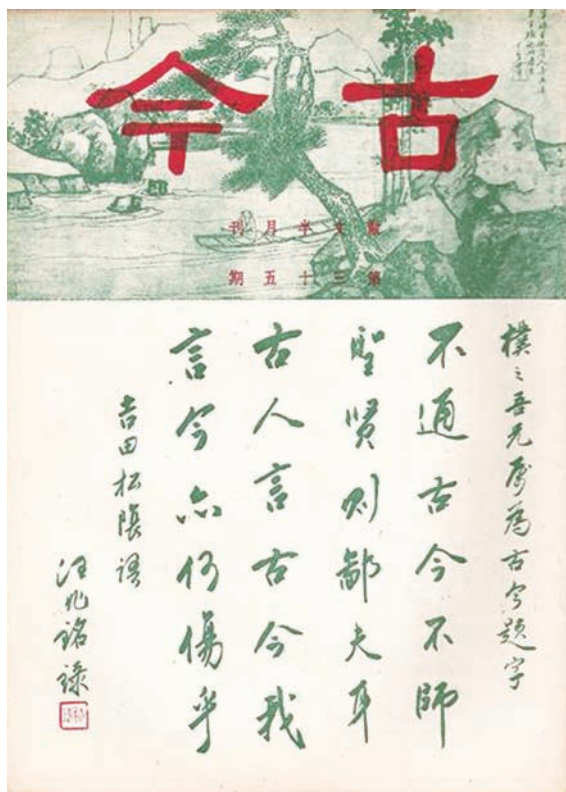 古今
散文半月刊
第三十五期
樸之吾兄屬為古今題字
不通古今不師
聖賢則鄙夫耳
古人言古今我
言今亦何傷乎
吉田松陰語
汪兆銘錄